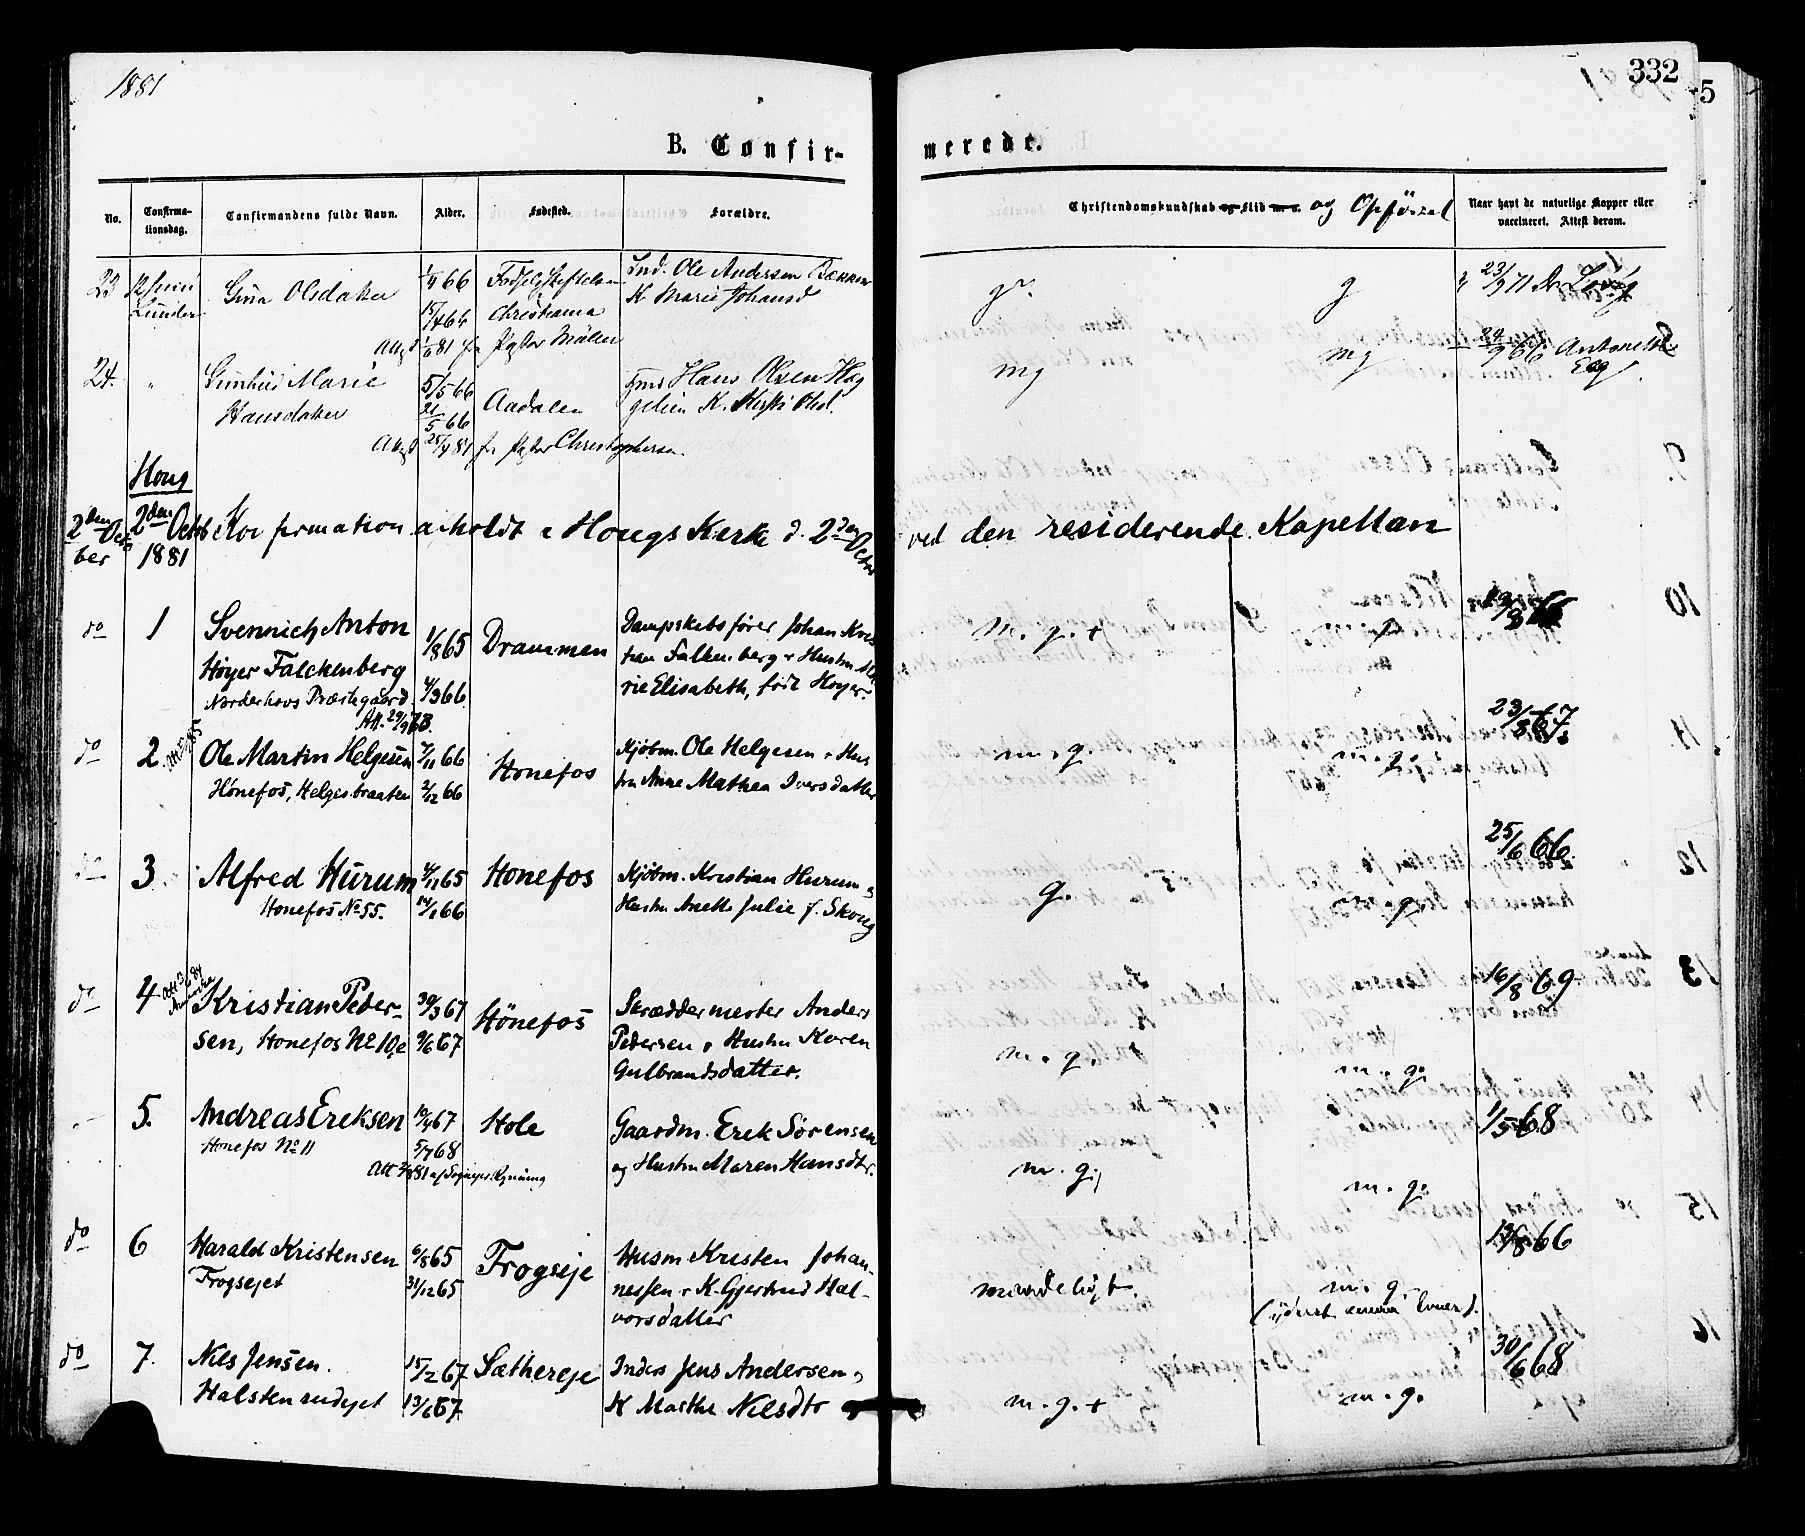 1881
332
5
B. Confir-
merede.
No.
Confirma-
tionsdag.
Confirmandens fulde Navn.
Alder.
Fødested.
Forældre.
Christendomskundskab og Flid m. v. og Opførsel
Naar havt de naturlige Kopper eller
vaccineret. Attest derom.
23 Juni Gina Olsdatter 1/4 66 Fødselsstiftelsen Ind. Ole Andersen Bakken
Lunder 15/4 66 Christiania K Marie Johansd
g. g 23/9 71 Dr
Att. 1/6 81 fr Pastor Møller
24. " Gunhild Marie 5/5 66 Aadalen Hans Olsen Hag
Hansdatter 21/5 66 K. Olsd.
mg mg 24/9 66 Antonette
Egg
Att. 25/4 81 fr Pastor Christophersen
Houg
2den Octo 2den Octob Konfirmation afholdt i Hougs Kirke d. 2den Octbr ved den residerende Kapellan
ber 1881
do 1 Svennich Anton 1/8 65 Drammen Dampskibsfører Johan Kris
Høyer Falckenberg 4/3 66 tian Falkenberg & Hustru Ma
Norderhovs Præstegaard. rie Elisabeth, født Høyer.
m. g. + 19/8 66
Att.
do 2. Ole Martin Helgesen 7/11 66 Hønefos Kjøbm. Ole Helgesen & Hus
Hønefos, Helgesbraaten 2/12 66 fru Anne Mathea Iversdatter
m. g. m. g. 23/8 67.
do 3. Alfred Hurum 4/11 65 Hønefos Kjøbm. Kristian Hurum &
Hønefos No 55. 14/1 66 Hustru Anette Julie f. Skoug
g. m. g. 25/6 66.
do 4 Kristian Peder- 30/3 67 Hønefos Skræddermester Anders
sen, Hønefos No 10,e 9/6 67 Pedersen & Hustru Karen
Gulbrandsdatter.
m. g. m. g. 16/8 69
5. Andreas Ereksen 10/4 67 Hole Gaardm. Erek Sørensen
Hønefos No 11 5/7 68 og Hustru Maren Hansdtr.
m. g. m. g. 1/5 68
do 6 Harald Kristensen 6/8 65 Frogseje Husm Kristen Johan-
Frogsejet 31/12 65 nessen & K. Gjertrud Hal-
vorsdatter
maadeligt. m. g.
(yderst Evner). 66
do 7. Nils Jensen. 15/2 67 Sæthereje Inders Jens Andersen &
Halstenrudejet 13/6 67 K Marthe Nilsdtr
m. g. + m. g. 30/6 68